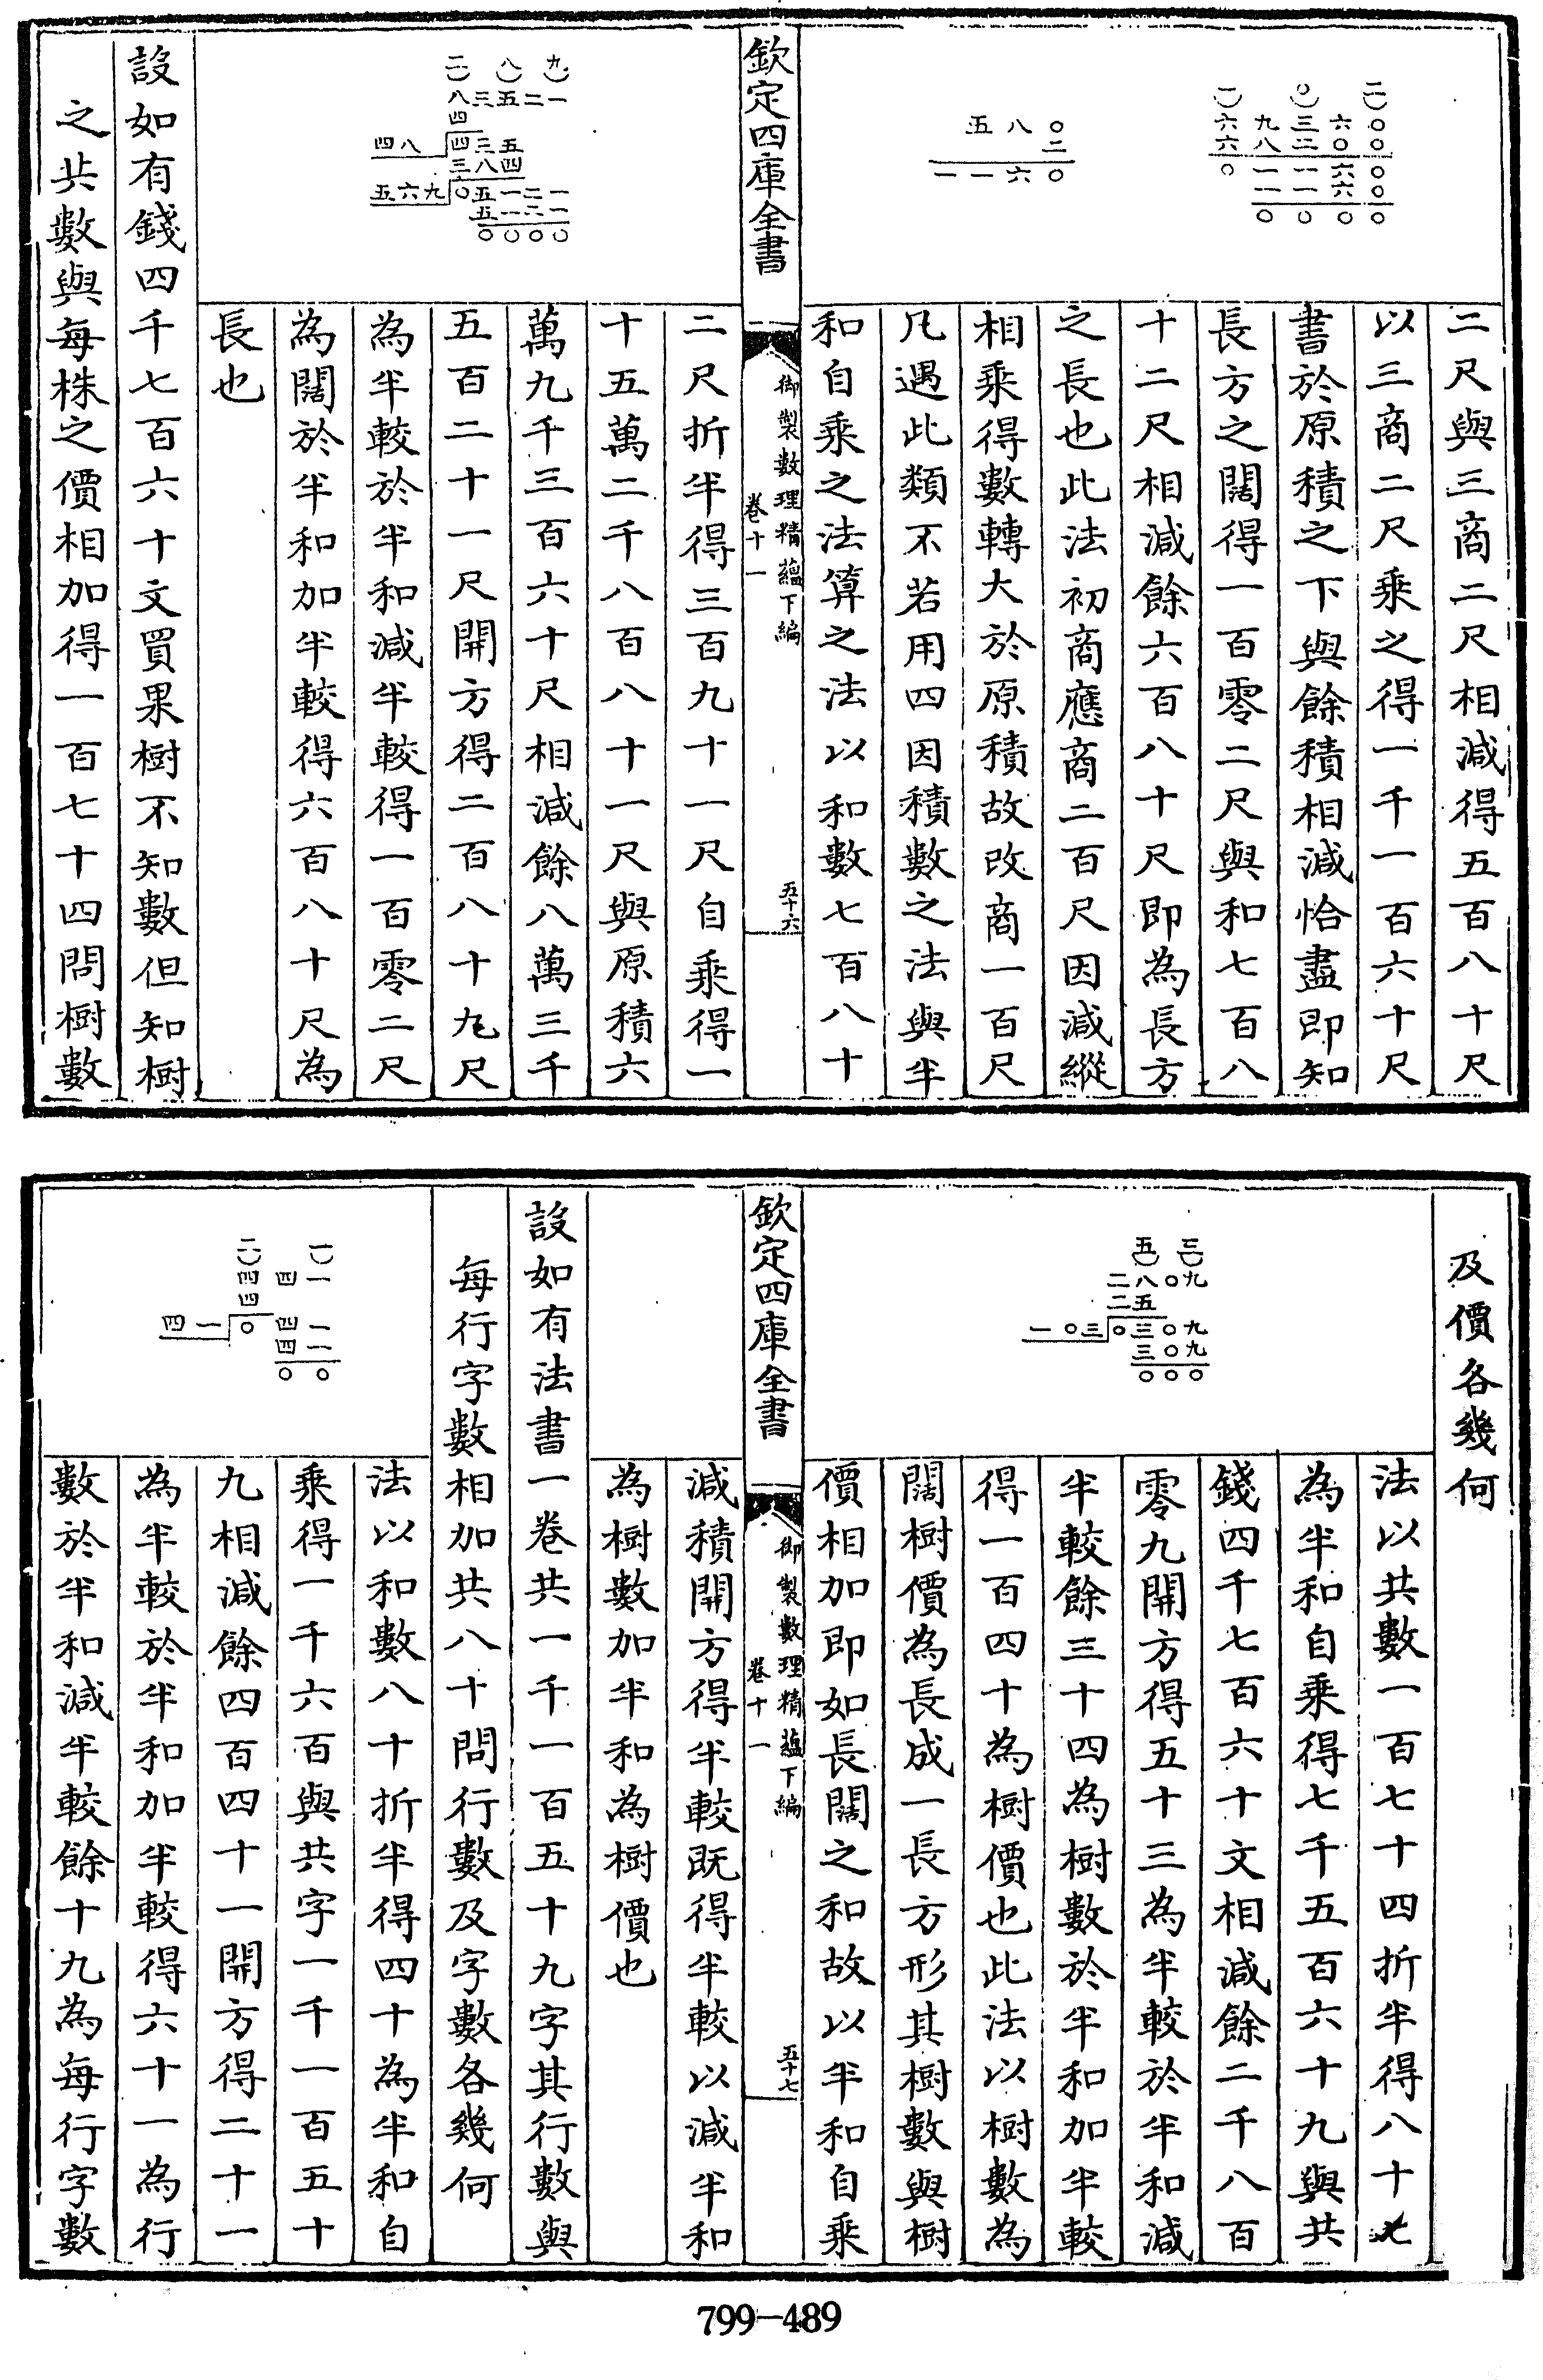 一〇二
六九三六〇
六八二〇〇
〇一一六〇
一一六〇
〇〇〇〇
五八〇
二
一一六〇
二尺與三商二尺相減得五百八十尺
以三商二尺乘之得一千一百六十尺
書於原積之下與餘積相減恰盡即知
長方之闊得一百零二尺與和七百八
十二尺相減餘六百八十尺即為長方
之長也此法初商應商二百尺因減縱
相乘得數轉大於原積故改商一百尺
凡遇此類不若用四因積數之法與半
和自乘之法算之法以和數七百八十
欽定四庫全書
御製數理精蘊下編
卷十一
五十六
二八九
八三五二一
四
四八四三五
三八四
五六九〇五一二一
五一二一
〇〇〇〇
二尺折半得三百九十一尺自乘得一
十五萬二千八百八十一尺與原積六
萬九千三百六十尺相減餘八萬三千
五百二十一尺開方得二百八十九尺
為半較於半和減半較得一百零二尺
為闊於半和加半較得六百八十尺為
長也
設如有錢四千七百六十文買果樹不知數但知樹
之共數與每株之價相加得一百七十四問樹數
及價各幾何
五三
二八〇九
二五
一〇三〇三〇九
三〇九
〇〇〇
法以共數一百七十四折半得八十七
為半和自乘得七千五百六十九與共
錢四千七百六十文相減餘二千八百
零九開方得五十三為半較於半和減
半較餘三十四為樹數於半和加半較
得一百四十為樹價也此法以樹數為
闊樹價為長成一長方形其樹數與樹
價相加即如長闊之和故以半和自乘
欽定四庫全書
御製數理精蘊下編
卷十一
五十七
減積開方得半較既得半較以減半和
為樹數加半和為樹價也
設如有法書一卷共一千一百五十九字其行數與
每行字數相加共八十問行數及字數各幾何
二一
四四一
四
四一〇四一
四一
〇〇
法以和數八十折半得四十為半和自
乘得一千六百與共字一千一百五十
九相減餘四百四十一開方得二十一
為半較於半和加半較得六十一為行
數於半和減半較餘十九為每行字數
799-489